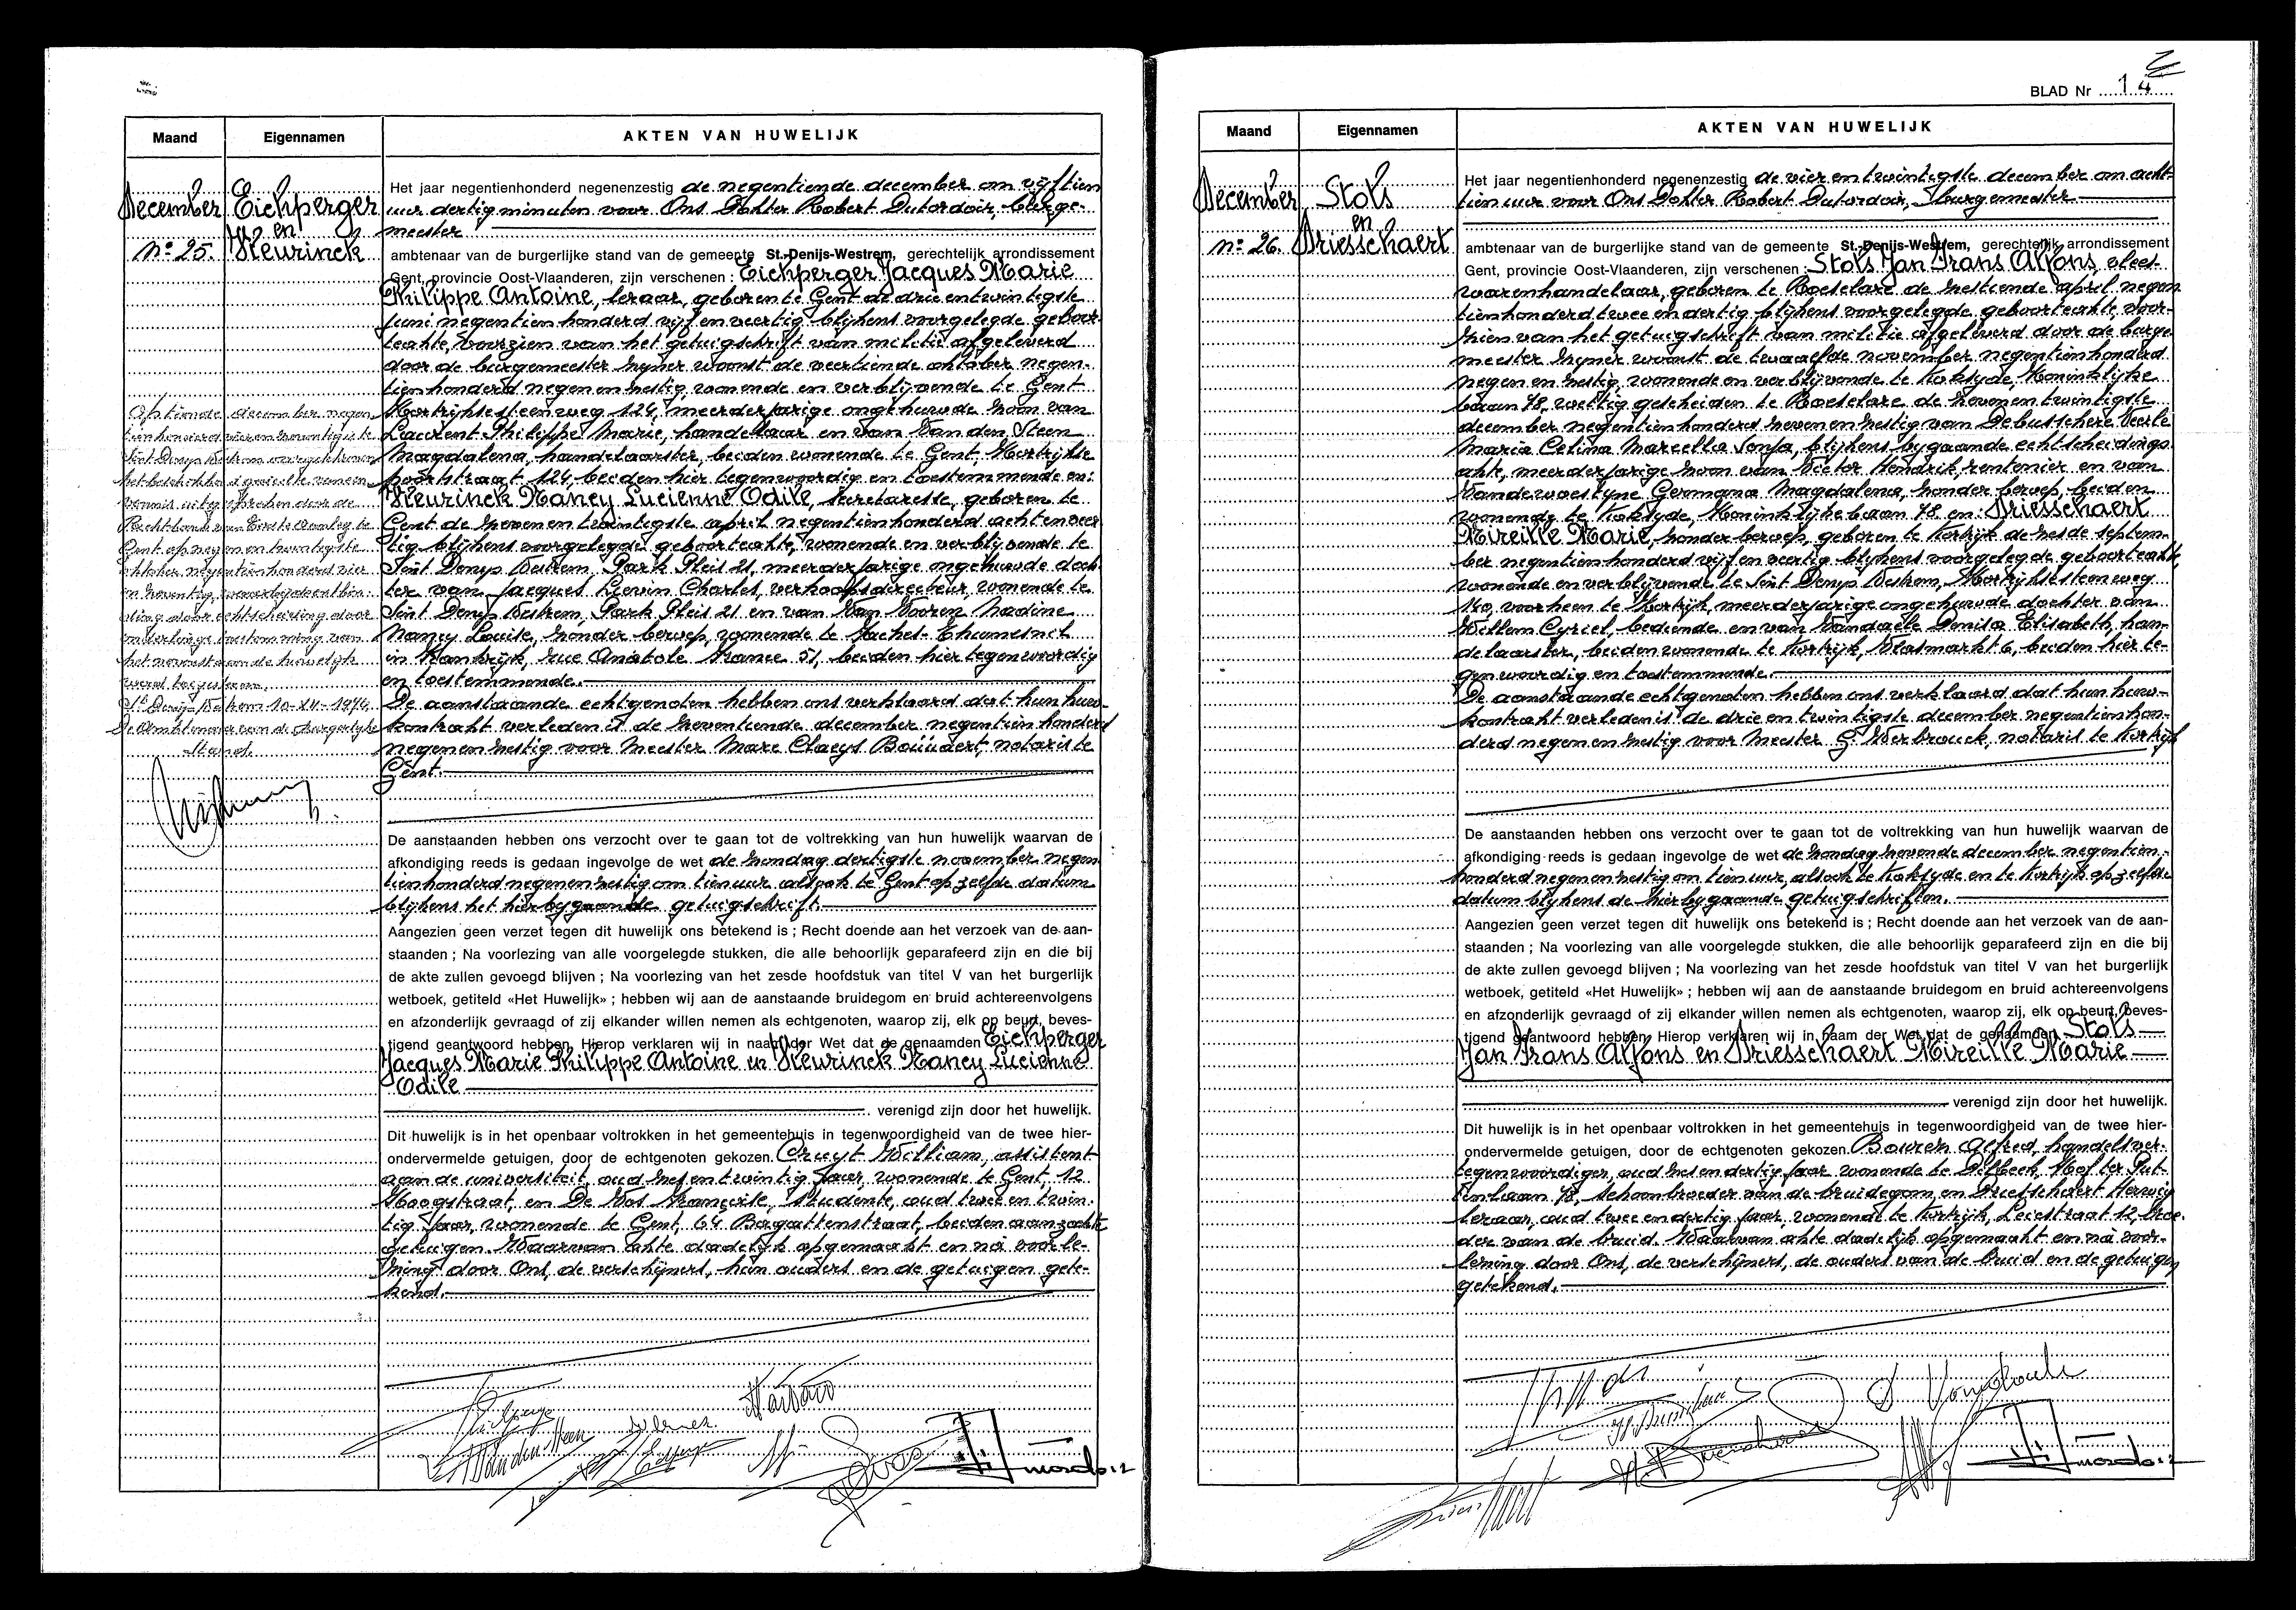 Maand
Eigennamen
AKTEN VAN HUWELIJK
December
Eichperger
en
Heurinck
No 25.
Het jaar negentienhonderd negenenzestig de negentiende december om vijftien
uur dertig minuten voor Ons Dokter Robert Dutordoir, burge-
meester
ambtenaar van de burgerlijke stand van de gemeente St.-Denijs-Westrem, gerechtelijk arrondissement
Gent, provincie Oost-Vlaanderen, zijn verschenen : Eichperger Jacques Marie
Philippe Antoine, leraar, geboren te Gent de drie en twintigste
juni negentienhonderd vijf en veertig blijkens voorgelegde geboor-
teakte, voorzien van het getuigschrift van militie afgeleverd
door de burgemeester zijner woonst de veertiende oktober negen-
tienhonderd negen en zestig wonende en verblijvende te Gent
Kortrijksesteenweg 124, meerderjarige ongehuwde zoon van
Laurent Philippe Marie, handelaar en van Van den Steen
Magdalena, handelaarster, beiden wonende te Gent, Kortrijkse
poortstraat 124, beiden hier tegenwoordig en toestemmende en:
Heurinck Nancy Lucienne Odile, sekretaresse, geboren te
Gent de zeven en twintigste april negentienhonderd acht en veer
tig blijkens voorgelegde geboorteakte, wonende en verblijvende te
Sint Denys Westrem, Park Pleis 21, meerderjarige ongehuwde doch
ter van Jacques Lievin Charles, verkoopsdirecteur wonende te
Sint Denys Westrem, Park Pleis 21 en van Van Vooren Nadine
Nancy Louise, zonder beroep, wonende te Faches-Thumesnil
in Frankrijk, rue Anatole France 51, beiden hier tegenwoordig
en toestemmende.
De aanstaande echtgenoten hebben ons verklaard dat hun huwe-
kontrakt verleden is de zeventiende december negentienhonderd
negen en zestig voor Meester Marc Claeys Boüüaert, notaris te
Gent.
Op tiende december negen
tienhonderd vier en zeventig is te
Sint Denys Westrem overgeschreven
het beschikkend gedeelte van een
vonnis uitgesproken door de
Rechtbank van Eerste Aanleg te
Gent op negen en twintigste
oktober negentienhonderd vier
en zeventig waarbij de ontbin-
ding door echtscheiding door
onderlinge toestemming van
het nevenstaande huwelijk
werd toegestaan.
St Denijs Westrem 10-XII-1974
De Ambtenaar van de Burgerlijke
Stand.
De aanstaanden hebben ons verzocht over te gaan tot de voltrekking van hun huwelijk waarvan de
afkondiging reeds is gedaan ingevolge de wet de zondag dertigste november negen
tienhonderd negen en zestig om tien uur alsook te Gent op zelfde datum
blijkens het hierbygaande getuigschrift.
Aangezien geen verzet tegen dit huwelijk ons betekend is ; Recht doende aan het verzoek van de aan-
staanden ; Na voorlezing van alle voorgelegde stukken, die alle behoorlijk geparafeerd zijn en die bij
de akte zullen gevoegd blijven ; Na voorlezing van het zesde hoofdstuk van titel V van het burgerlijk
wetboek, getiteld «Het Huwelijk» ; hebben wij aan de aanstaande bruidegom en bruid achtereenvolgens
en afzonderlijk gevraagd of zij elkander willen nemen als echtgenoten, waarop zij, elk op beurt, beves-
tigend geantwoord hebben. Hierop verklaren wij in naam der Wet dat de genaamden Eichperger
Jacques Marie Philippe Antoine en Heurinck Nancy Lucienne
Odile
verenigd zijn door het huwelijk.
Dit huwelijk is in het openbaar voltrokken in het gemeentehuis in tegenwoordigheid van de twee hier-
ondervermelde getuigen, door de echtgenoten gekozen. Cruyt William, assistent
aan de universiteit, oud zes en twintig jaar, wonende te Gent, 12
Hoogstraat, en De Vos Françoise, studente, oud twee en twin-
tig jaar, wonende te Gent, 64 Bagattenstraat, beiden aanzochte
getuigen. Waarvan akte dadelijk opgemaakt en na voorle-
zing door Ons, de verschijners, hun ouders en de getuigen gete-
kend.
BLAD Nr 14
Maand
Eigennamen
AKTEN VAN HUWELIJK
December
Stols
en
Driesschaert
No 26.
Het jaar negentienhonderd negenenzestig de vier en twintigste december om acht-
tien uur voor Ons Dokter Robert Dutordoir, Burgemeester
ambtenaar van de burgerlijke stand van de gemeente St.-Denijs-Westrem, gerechtelijk arrondissement
Gent, provincie Oost-Vlaanderen, zijn verschenen : Stols Jan Frans Alfons, vlees
warenhandelaar, geboren te Roeselare de zestiende april negen
tienhonderd twee en dertig blijkens voorgelegde geboorteakte voor-
zien van het getuigschrift van militie afgeleverd door de burge
meester zijner woonst de twaalfde november negentienhonderd
negen en zestig, wonende en verblijvende te Koksyde, Koninklijke
baan 78, wettig gescheiden te Roeselare de zeven en twintigste
december negentienhonderd zeven en zestig van Debusschere Cecile
Maria Celina Marcella Sonja, blijkens bygaande echtscheidings
akte, meerderjarige zoon van Victor Hendrik, rentenier en van
Vandewoestyne Germana Magdalena, zonder beroep, beiden
wonende te Koksyde, Koninklijke baan 78 en: Driesschaert
Mireille Marie, zonder beroep, geboren te Kortrijk de zesde septem-
ber negentienhonderd vijf en veertig blijkens voorgelegde geboorteakte,
wonende en verblijvende te Sint Denys Westrem, Kortrijksesteenweg
140, voorheen te Kortrijk, meerderjarige ongehuwde dochter van
Willem Cyriel, bediende en van Vandaele Denisa Elisabeth, han-
delaarster, beiden wonende te Kortrijk, Vlasmarkt 6, beiden hier te-
genwoordig en toestemmende.
De aanstaande echtgenoten hebben ons verklaard dat hun huwe-
kontrakt verleden is de drie en twintigste december negentienhon-
derd negen en zestig voor Meester G. Werbrouck, notaris te Kortrijk
De aanstaanden hebben ons verzocht over te gaan tot de voltrekking van hun huwelijk waarvan de
afkondiging reeds is gedaan ingevolge de wet de zondag zevende december negentien-
honderd negen en zestig om tien uur, alsook te Koksyde en te Kortrijk op zelfde
datum blijkens de hierbygaande getuigschriften.
Aangezien geen verzet tegen dit huwelijk ons betekend is ; Recht doende aan het verzoek van de aan-
staanden ; Na voorlezing van alle voorgelegde stukken, die alle behoorlijk geparafeerd zijn en die bij
de akte zullen gevoegd blijven ; Na voorlezing van het zesde hoofdstuk van titel V van het burgerlijk
wetboek, getiteld «Het Huwelijk» ; hebben wij aan de aanstaande bruidegom en bruid achtereenvolgens
en afzonderlijk gevraagd of zij elkander willen nemen als echtgenoten, waarop zij, elk op beurt, beves-
tigend geantwoord hebben. Hierop verklaren wij in naam der Wet dat de genaamden Stols
Jan Frans Alfons en Driesschaert Mireille Marie
verenigd zijn door het huwelijk.
Dit huwelijk is in het openbaar voltrokken in het gemeentehuis in tegenwoordigheid van de twee hier-
ondervermelde getuigen, door de echtgenoten gekozen. Bouren Alfred, handelsver-
tegenwoordiger, oud zes en dertig jaar wonende te Dilbeek, Hof ter Put-
tenlaan 78, schoonbroeder van de bruidegom, en Driesschaert Herwig
leraar, oud twee en dertig jaar, wonende te Kortrijk, Leiestraat 12, broe-
der van de bruid. Waarvan akte dadelijk opgemaakt en na voor-
lezing door Ons, de verschijners, de ouders van de bruid en de getuigen
getekend.